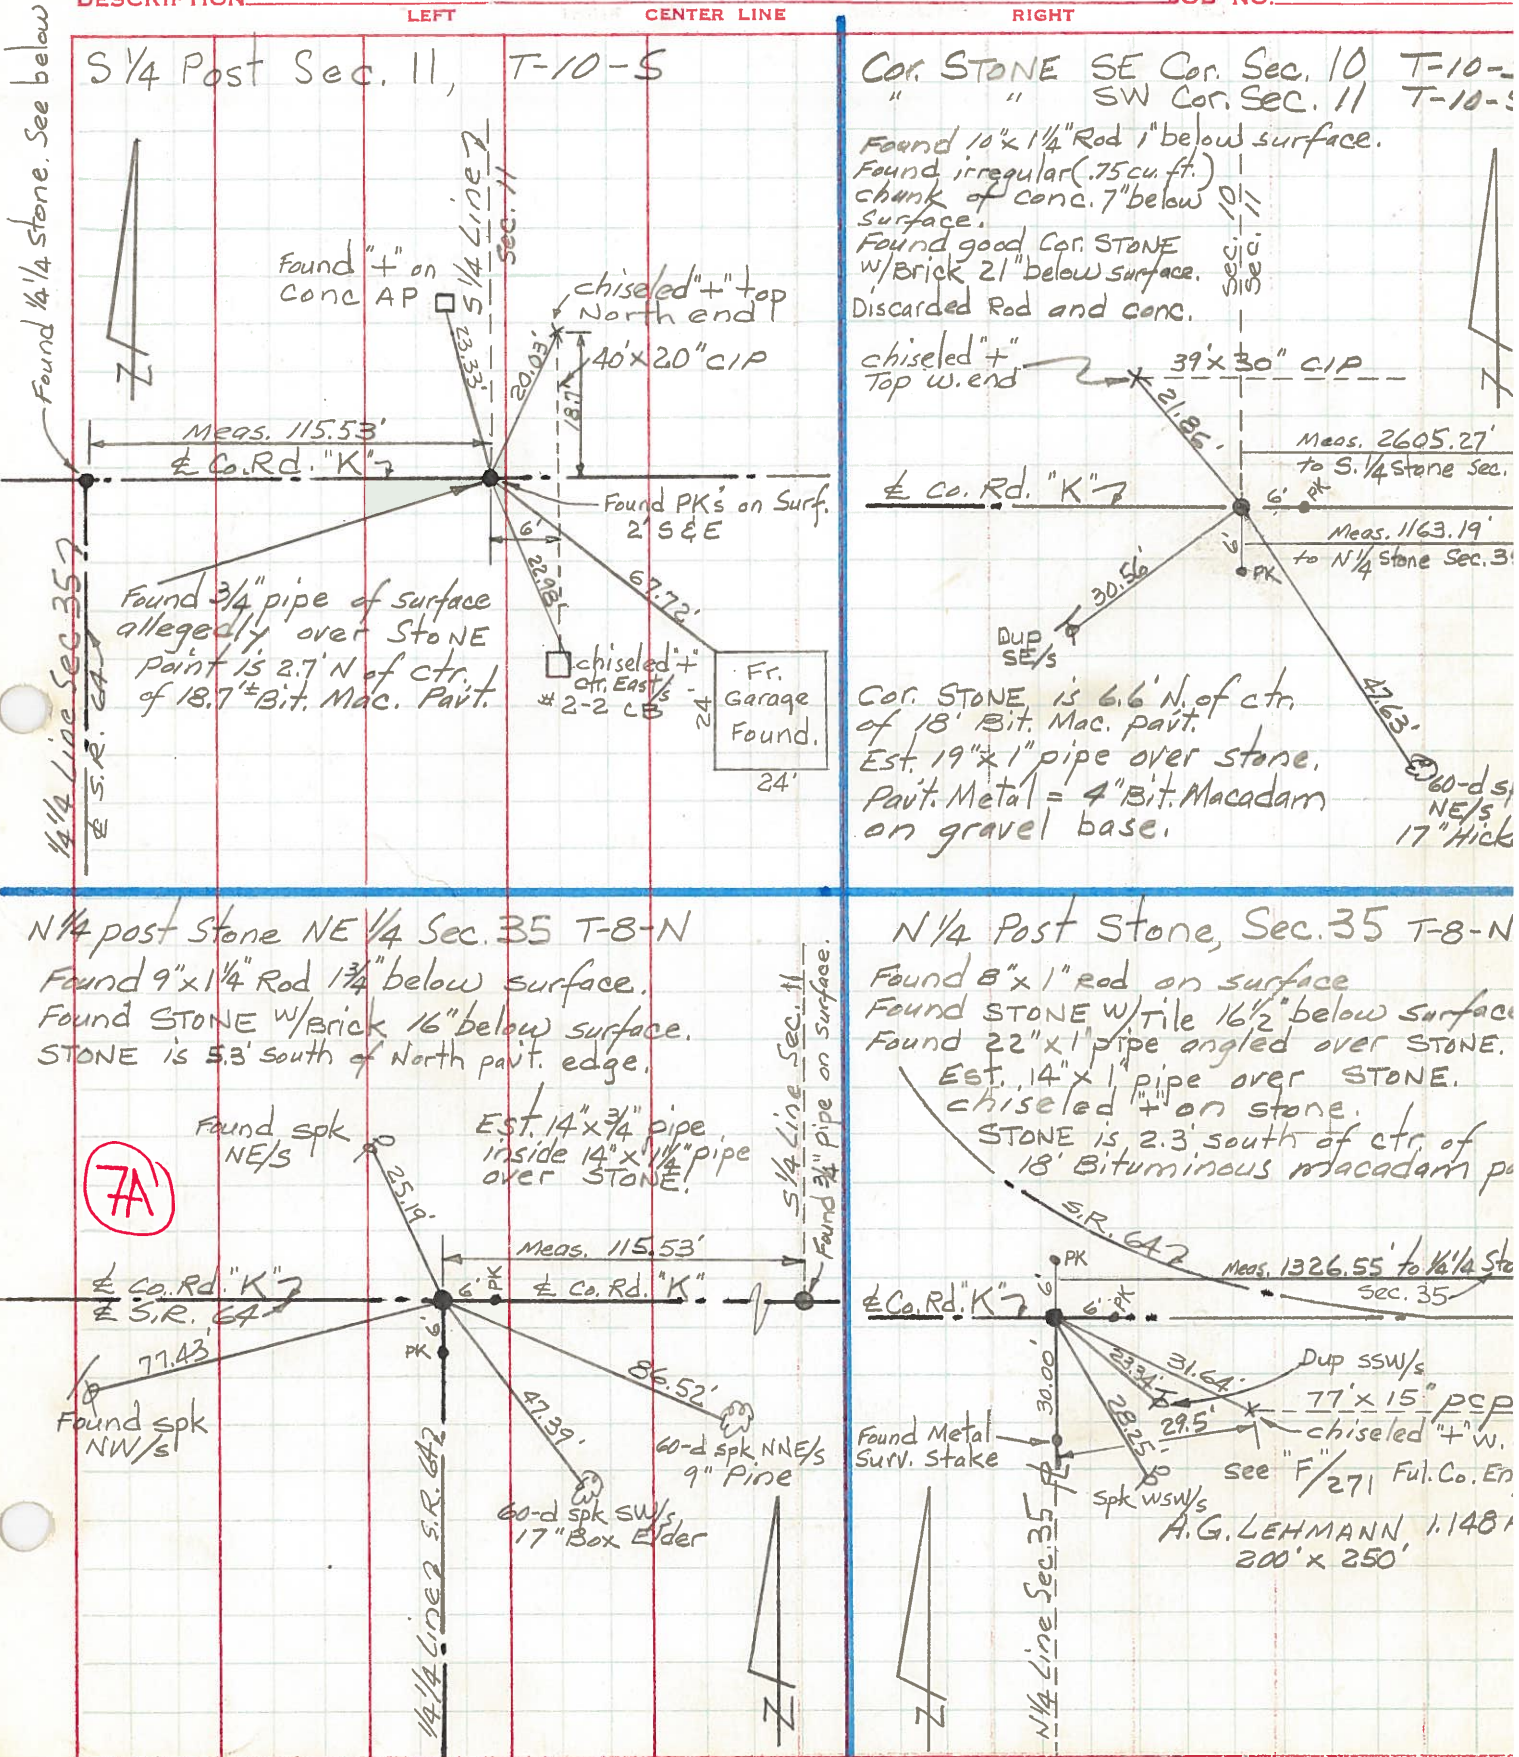 DESCRIPTION
LEFT
CENTER LINE
RIGHT
JOB NO.
Found ¼ ¼ Stone. See below
S 1/4 Post Sec. 11, T-10-S
S 1/4 Line
Sec. 11
Found "+" on
Conc AP
chiseled "+" top
North end
40' x 20" CIP
23.33'
20.03'
18.7'
Meas. 115.53'
℄ Co. Rd. "K"
Found PK's on Surf.
2' S & E
6'
22.98'
67.72'
Found 3/4" pipe of surface
allegedly over STONE
Point is 2.7' N of ctr.
of 18.7'± Bit. Mac. Pavt.
chiseled "+"
ctr. East/s
# 2-2 CB
24'
Fr.
Garage
Found.
24'
¼ ¼ Line Sec 35
℄ S.R. 64
Cor. STONE SE Cor. Sec. 10 T-10-
" " SW Cor. Sec. 11 T-10-S
Found 10" x 1¼" Rod 1" below surface.
Found irregular (.75 cu. ft.)
chunk of conc. 7" below
surface.
Found good Cor. STONE
w/Brick 21" below surface.
Discarded Rod and conc.
Sec. 10
Sec. 11
chiseled "+"
Top w. end
39' x 30" CIP
21.86'
Meas. 2605.27'
to S. 1/4 Stone Sec.
℄ Co. Rd. "K"
6'
PK
Meas. 1163.19'
to N 1/4 Stone Sec. 3
6'
PK
30.56'
Dup
SE/s
47.63'
Cor. STONE is 6.6' N. of ctr.
of 18' Bit. Mac. pavt.
Est. 19" x 1" pipe over stone.
Pavt. Metal = 4" Bit. Macadam
on gravel base.
60-d sp
NE/s
17" Hick
N 1/4 post Stone NE 1/4 Sec. 35 T-8-N
Found 9" x 1¼" Rod 1¾" below surface.
Found STONE w/Brick 16" below surface.
STONE is 5.3' South of North pavt. edge.
Found spk
NE/s
Est. 14" x 3/4" pipe
inside 14" x 1¼" pipe
over STONE.
S 1/4 Line Sec. 11
Found 3/4" pipe on surface.
7A
25.19'
Meas. 115.53'
℄ Co. Rd. "K"
℄ S.R. 64
6'
PK
℄ Co. Rd. "K"
77.43'
PK
6'
86.52'
47.39'
Found spk
NW/s
60-d spk NNE/s
9" Pine
60-d spk SW/s
17" Box Elder
¼ ¼ Line S.R. 64
N 1/4 Post Stone, Sec. 35 T-8-N
Found 8" x 1" Rod on surface
Found STONE w/Tile 16½" below surface
Found 22" x 1" pipe angled over STONE.
Est. 14" x 1" pipe over STONE.
chiseled "+" on stone.
STONE is 2.3' south of ctr. of
18' Bituminous macadam pa
S.R. 64
PK
6'
Meas. 1326.55' to ¼ ¼ Sto
Sec. 35
℄ Co. Rd. "K"
6'
PK
30.00'
23.34'
31.64'
Dup SSW/s
77' x 15" pcp
29.5'
chiseled "+" w.
28.25'
Found Metal
Surv. Stake
See "F"/271 Ful. Co. En
Spk WSW/s
A.G. LEHMANN 1.148 A
200' x 250'
N 1/4 Line Sec. 35
℄